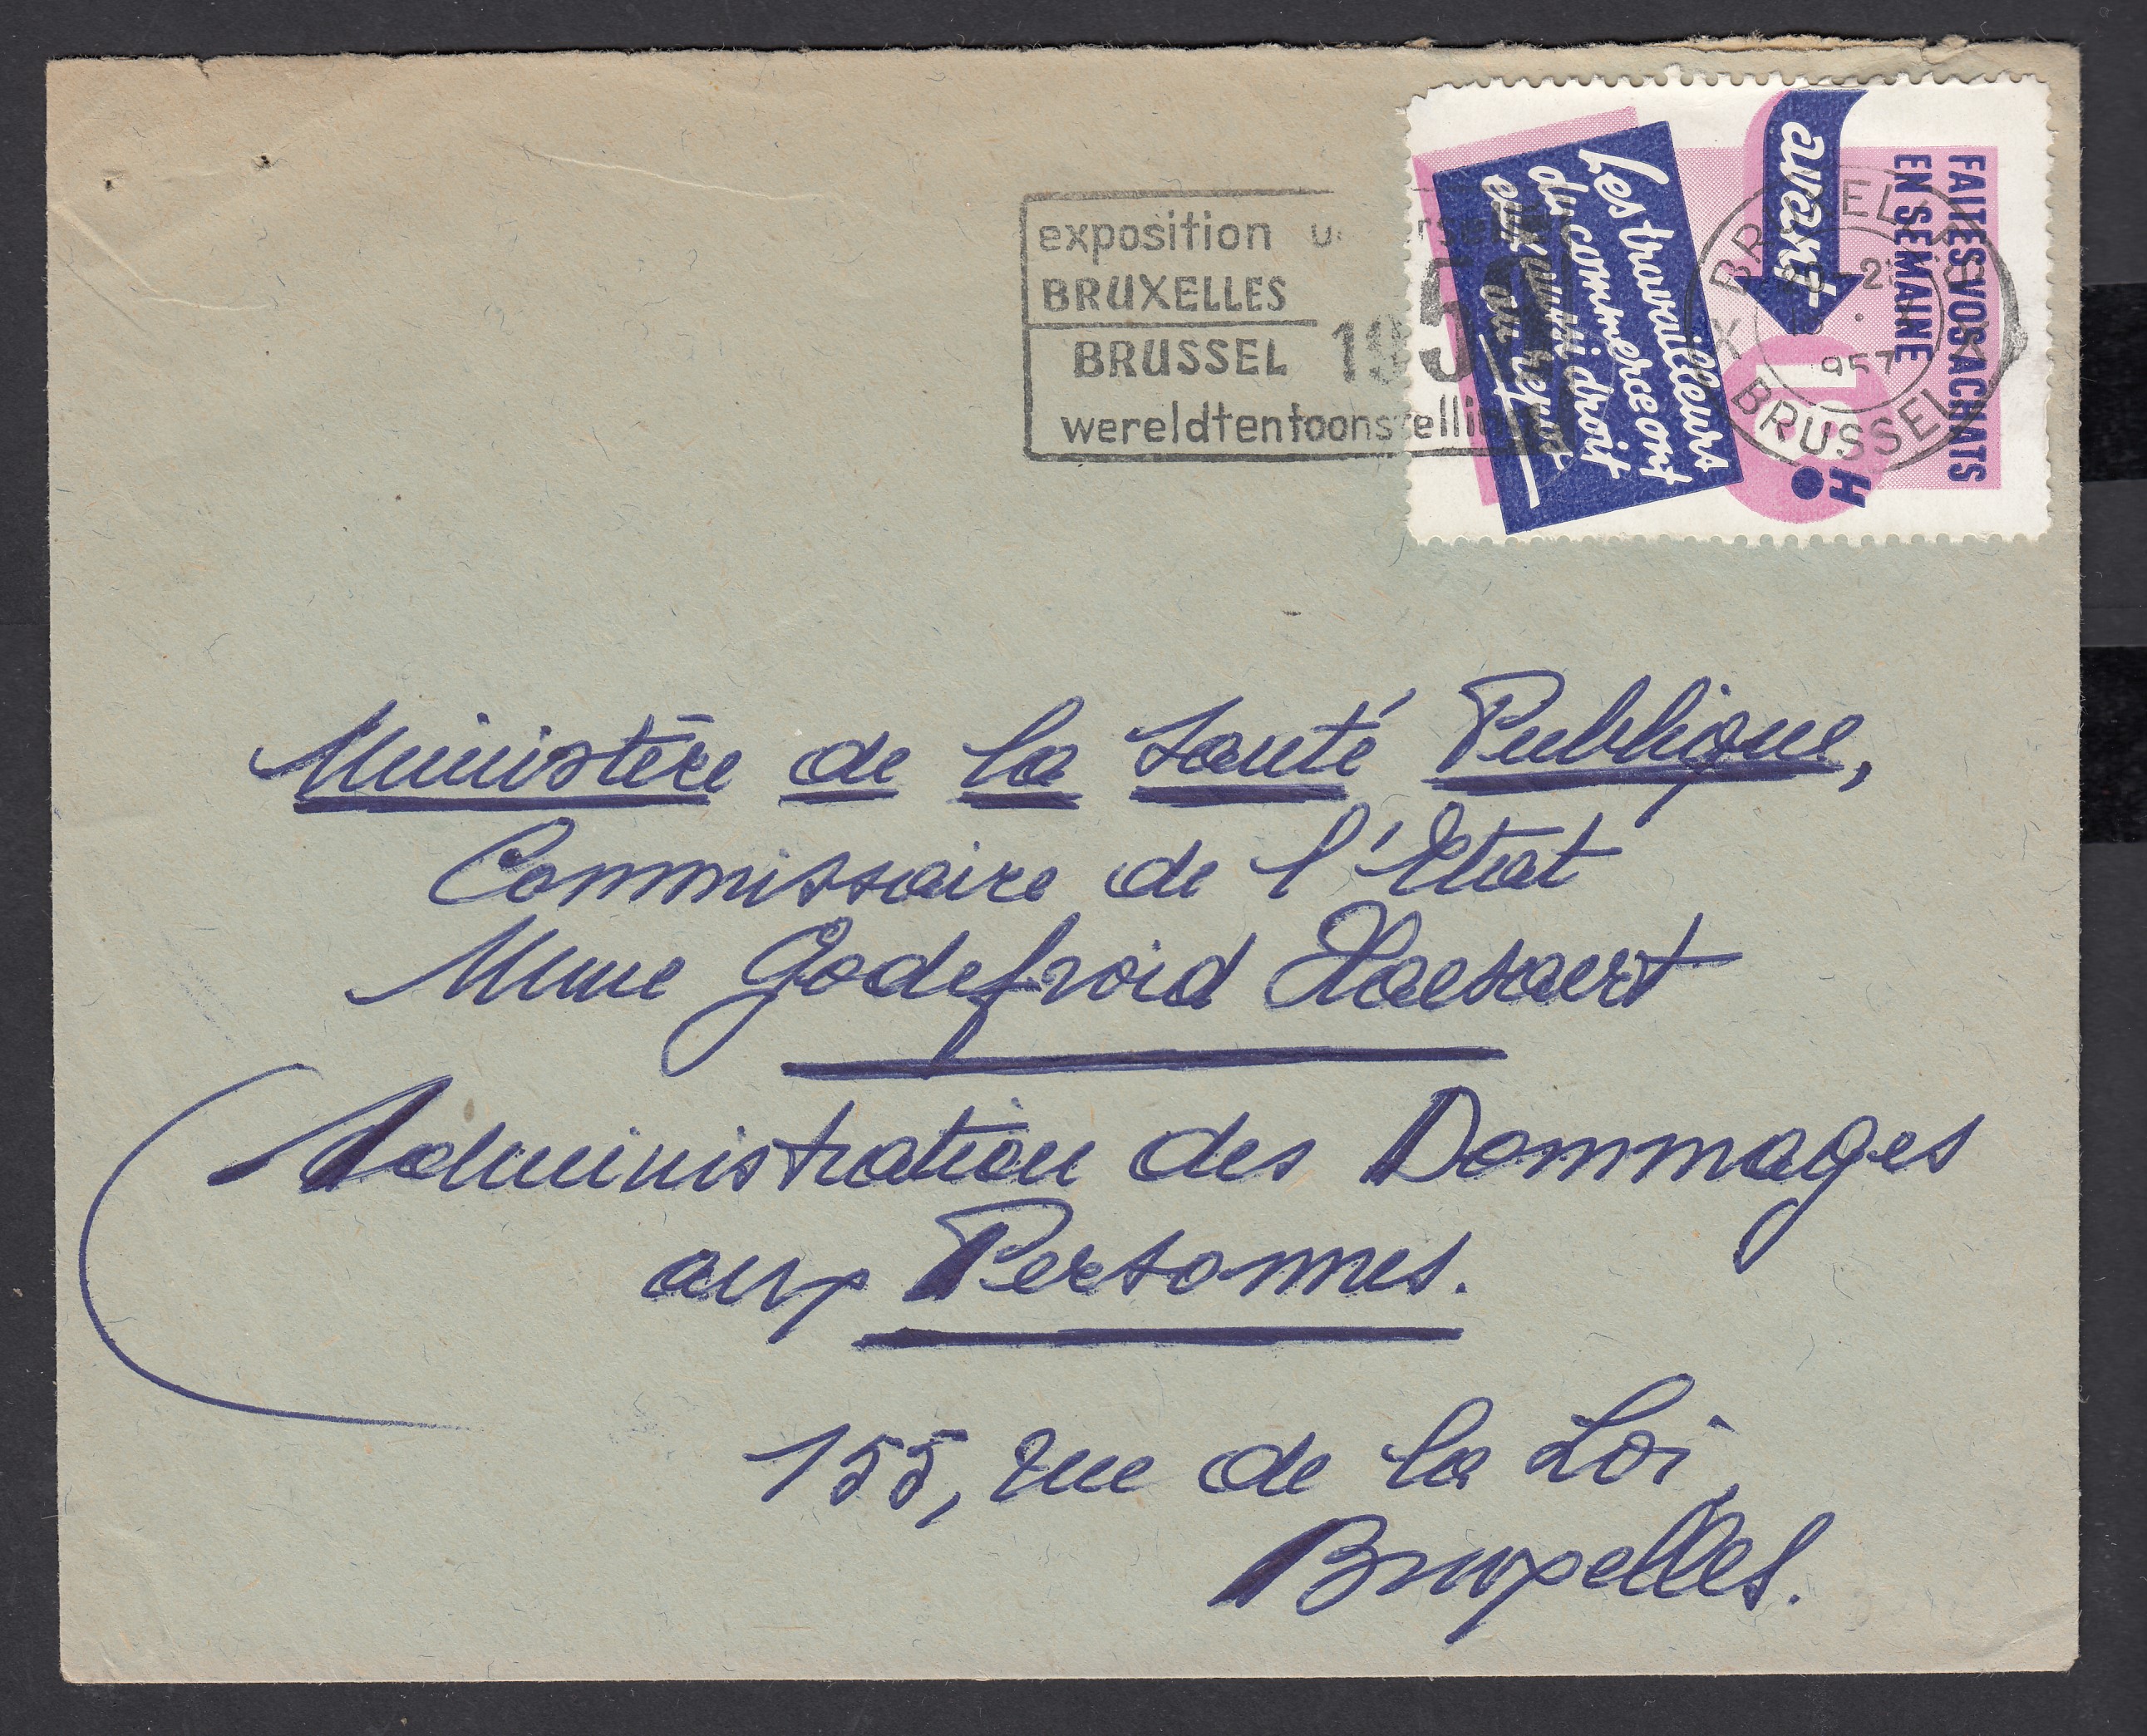 exposition
BRUXELLES
BRUSSEL 195
wereldtentoonstelling
FAITES VOS ACHATS
EN SEMAINE
avant
H.
Les travailleurs
du commerce ont
droit
au repos
BRUXELLES X
957
X BRUSSEL
Ministère de la Santé Publique,
Commissaire de l'Etat
Mme Godefroid Haesaert
Administration des Dommages
aux Personnes.
155, rue de la Loi,
Bruxelles.